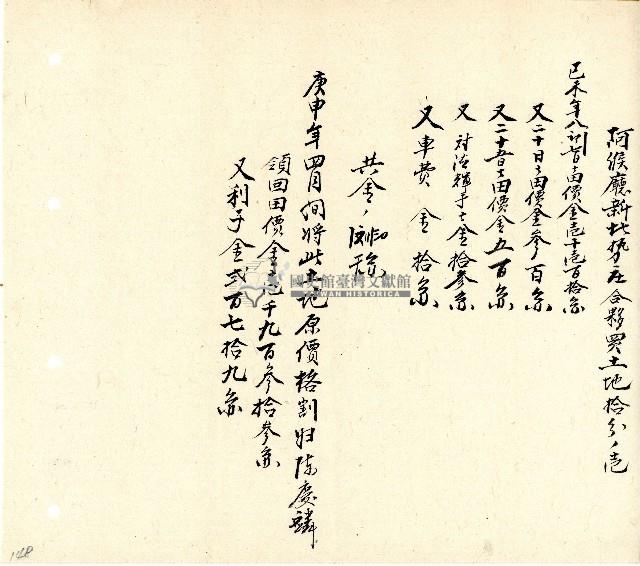 阿猴廳新北勢庄合夥買土地拾分ノ壱
己未年八初七日土田價金壱千壱百拾円
又二十日 〃田價金参百円
又二十五日土田價金五百円
又 対 士金拾参円
又車費 金拾円
共金
庚申年四月間將此土地原價格割归陈慶麟
領回田價金壱千九百参拾参円
又利子金弍百七拾九円
國史館臺灣文獻館
TAIWAN HISTORICA
148